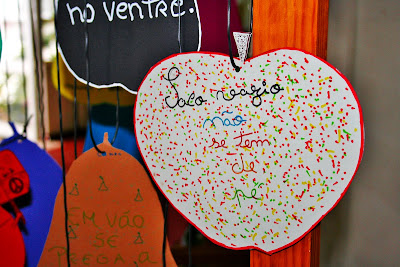 no VENTRE.
Saco vazio
não
se tem
de
pé
EM VÃO
SE
PEGA, A